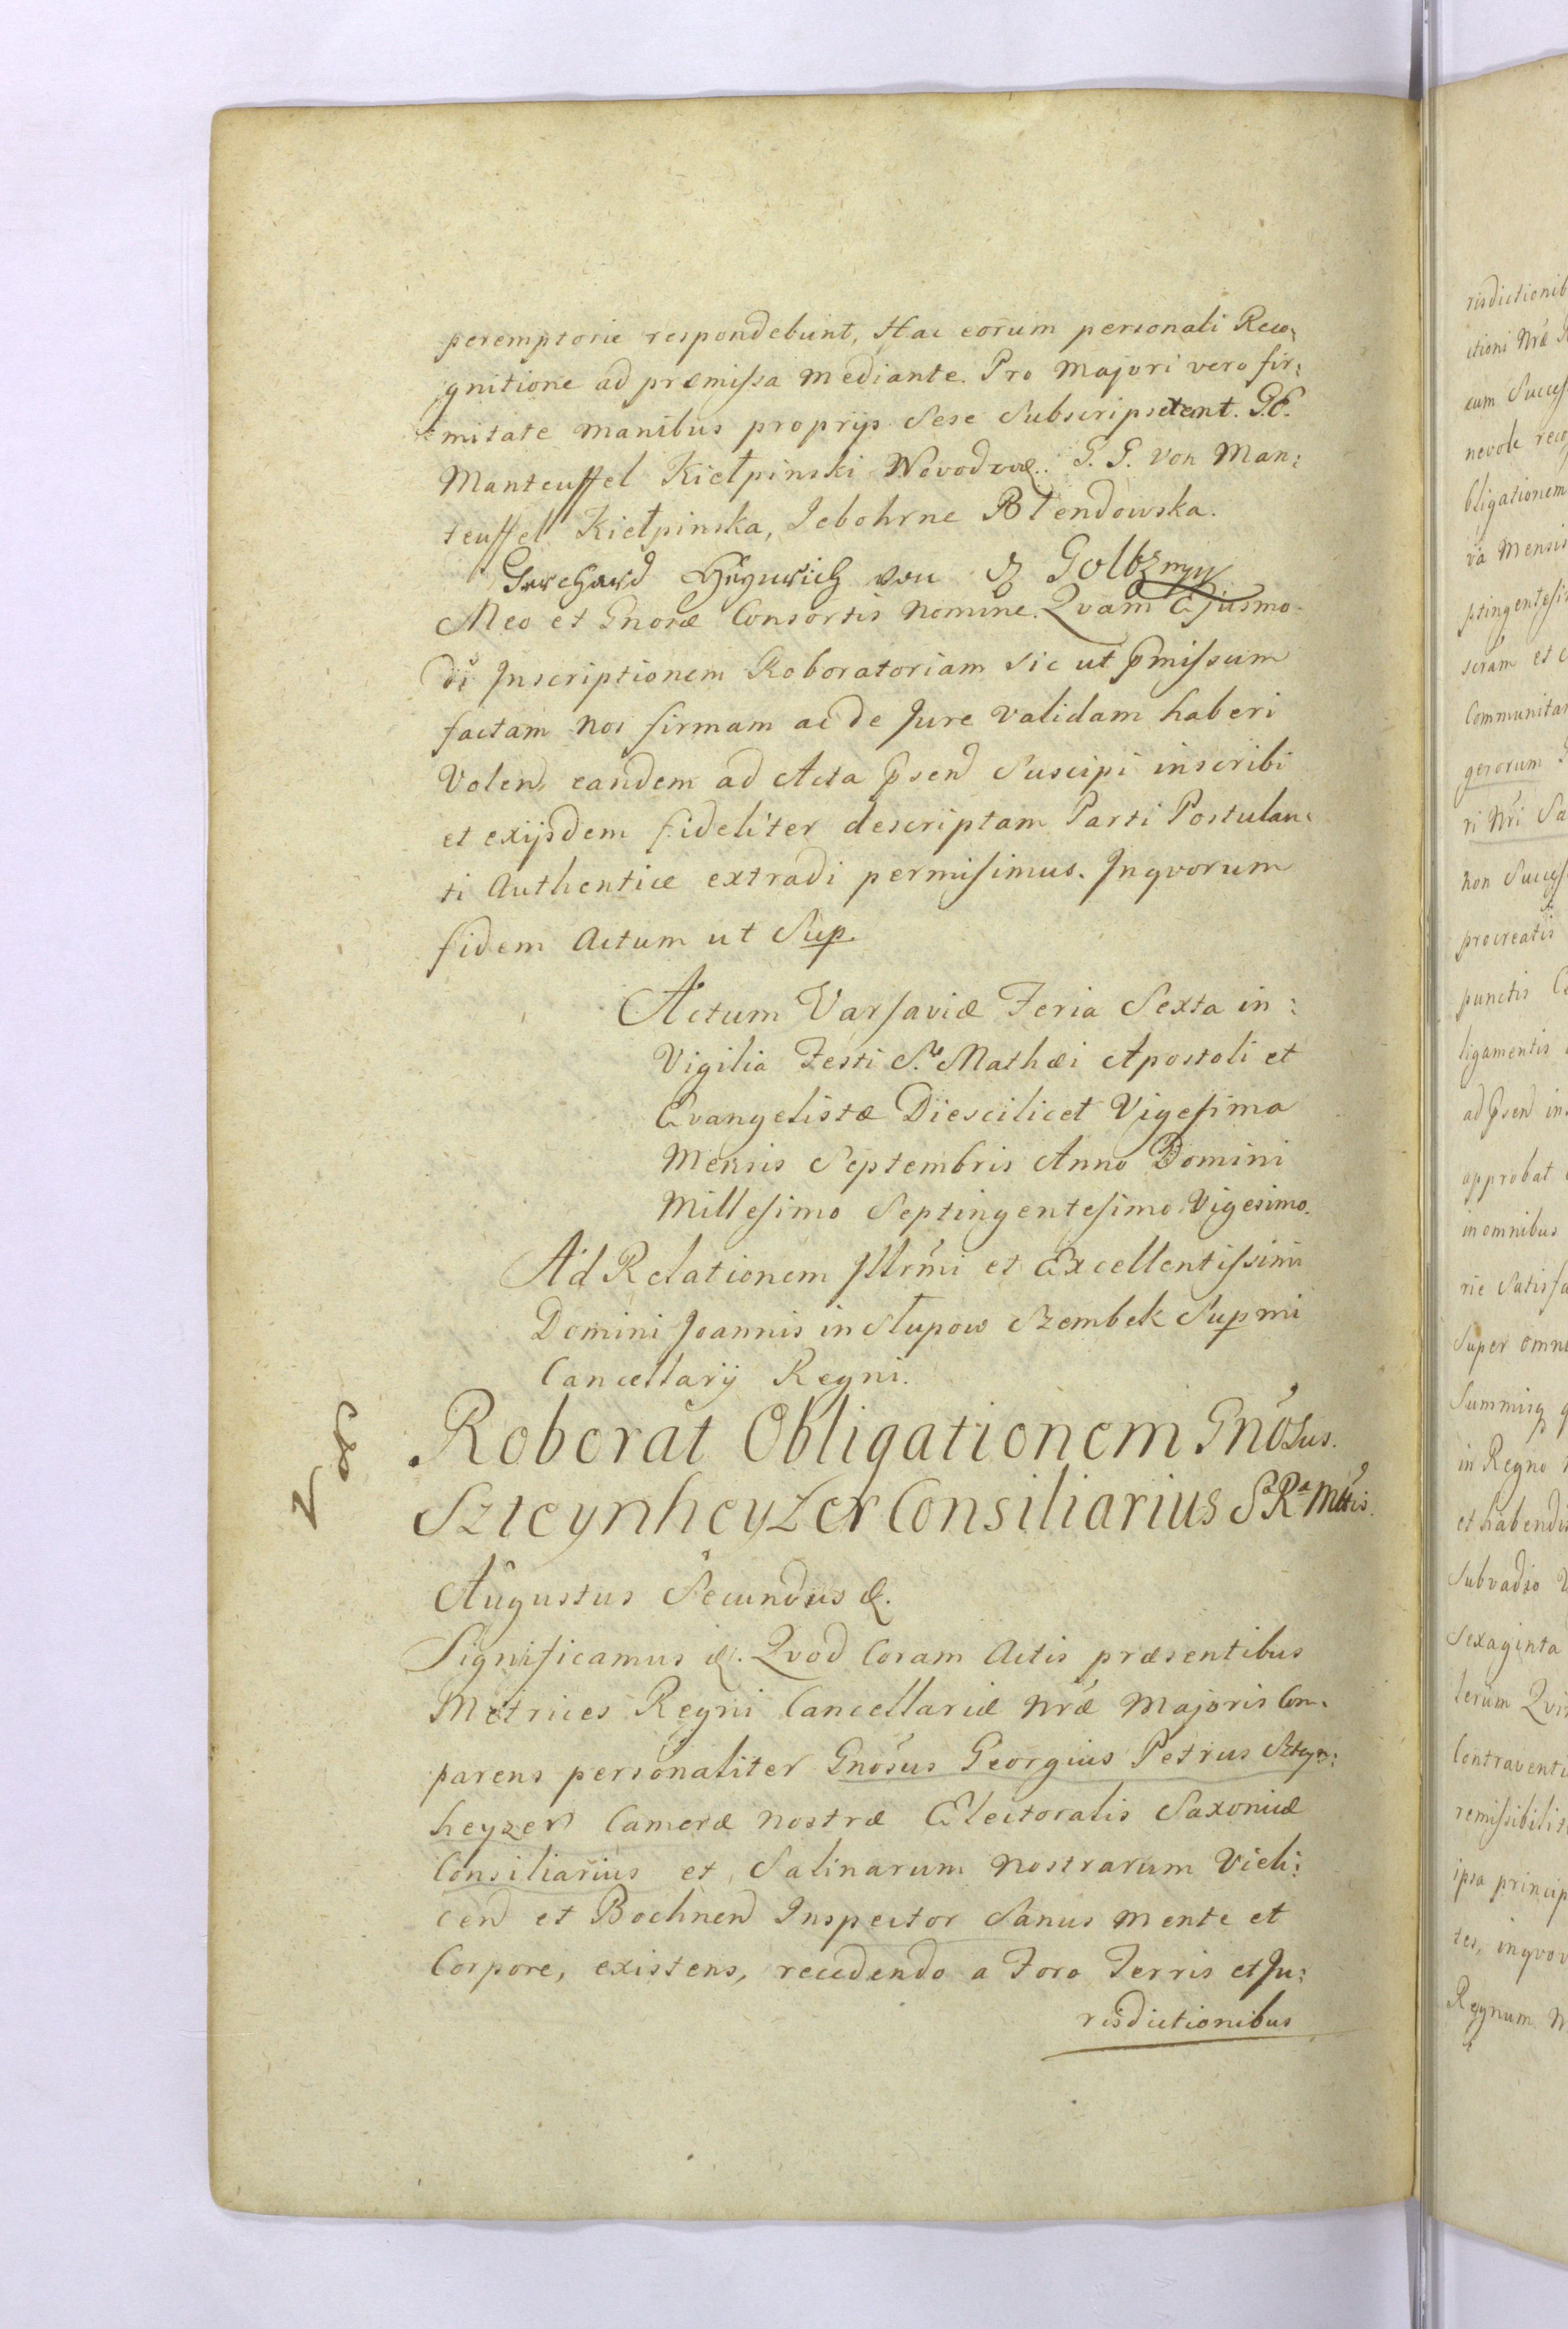 peremptorie respondebunt, Hac eorum personali Reco:
gnitione ad præmissa mediante. Pro majori vero fir:
mitate manibus proprijs sese subscripserunt. G. E.
Manteuffel Kiełpinski G. G. von Man:
teuffel Kiełpinska, Jebohrne Błendowska.
Gerchard Heynrich von Goltz mpp
Meo et Gnosæ Consortis nomine. Qvam Ejusmo-
di Inscriptionem Roboratoriam sic ut pmissum
factam nos firmam ac de Jure validam haberi
Volen. eandem ad Acta psen suscipi inscribi
et exijsdem fideliter descriptam Parti Postulan:
ti Authentice extradi permisimus. Inqvorum
fidem Actum ut Sup.
Actum Varsaviæ Feria Sexta in:
Vigilia Festi S. Mathæi Apostoli et
Evangelistæ Diescilicet Vigesima
Mensis Septembris Anno Domini
Millesimo Septingentesimo Vigesimo.
Ad Relationem Illrmi et Excellentissimi
Domini Joannis in Słupow Szembek Supmi
Cancellarij Regni.
N 8
Roborat Obligationem Gnosus.
Szteynheyzer Consiliarius S. R. Mttis.
Augustus Secundus &.
Significamus &. Qvod Coram Actis præsentibus
Metrices Regni Cancellariæ nræ Majoris Com:
parens personaliter Gnosus Georgius Petrus Szteyn:
heyzer Cameræ nostræ Electoralis Saxonicæ
Consiliarius et Salinarum nostrarum Vieli:
cen et Bochnen Inspector Sanus mente et
Corpore, existens, recedendo a Foro Terris et Ju:
risdictionibus
risdictionib
ctioni Nræ
cum Success
nevole reco
bligationem
va Mensis
ptingentesi
seram et
Communitat
gerorum
ri Nri Sa
non Success
procreatis
punctis
ligamentis
ad psen in
approbat
in omnibus
rie Satisfa
Super omni
Summisq
in Regno
et habendi
Subvadio
Sexaginta
lerum Qvi
Contraventi
remissibilit
ipsa princip
tes, inqvo
Regnum